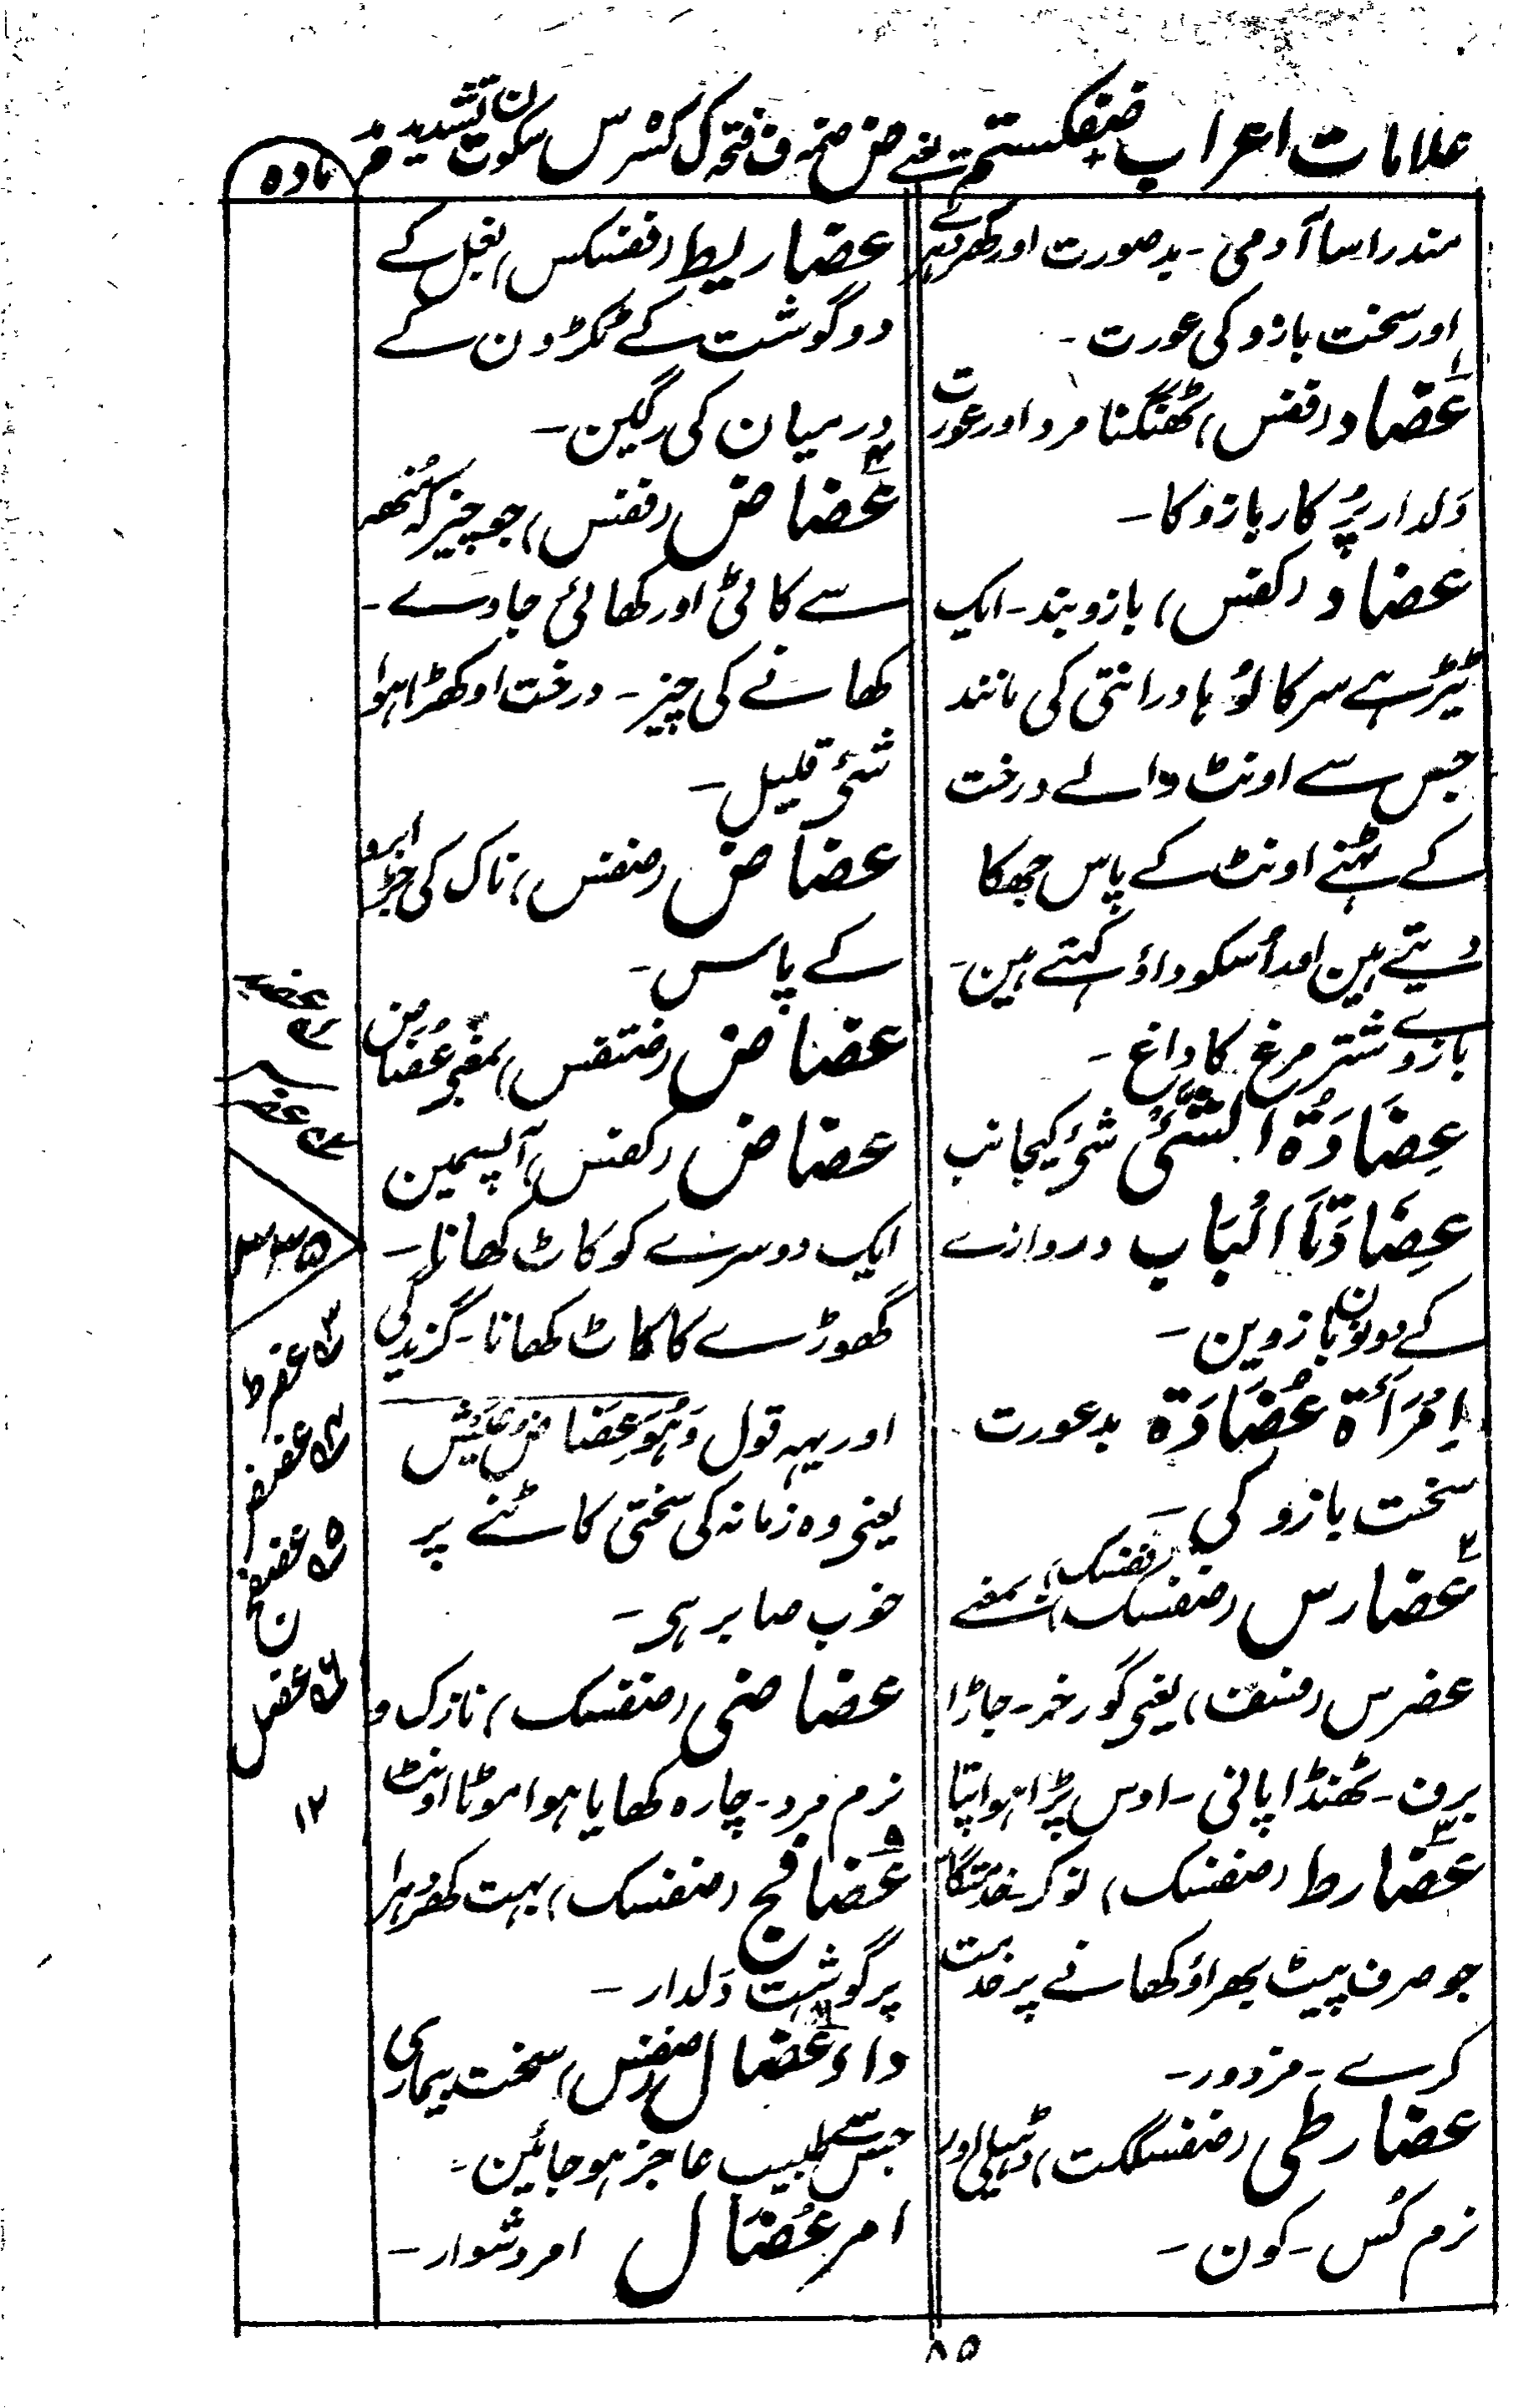 علامات اعراب ضفکستم یعنے ض ضمہ ف فتحہ ک کسرس سکون ت تشدید م مد
مادہ
مندرا سا آدمی - بدصورت اور کھردرے
اور سخت بازو کی عورت -
عضاد (ففس) ٹھنگنا مرد اور عورت
دَلدار پُر کار بازو کا -
عضاد (کفس) بازوبند - ایک
ٹیڑہے سر کا لوُہا درانتی کی مانند
جس سے اونٹ والے درخت
کے ٹہنے اونٹ کے پاس جھکا
دیتے ہین اور اُسکو داؤ کہتے ہین -
بازوے شتر مرغ کا داغ -
عِضَادَۃُ الشَّیْٔ شئ کیجانب
عِضَادَتَا الْبَاب دروازے
کے دونون بازوین -
اِمْرَأَۃ عُضَادَۃ بد عورت
سخت بازو کی -
عضارس (ضفسک) (ففسک) بمعنے
عضرس یعنی گورخر - جاڑا
برف - ٹھنڈا پانی - اوس پڑا ہوا پتا
عضارط (ضفسک) نوکر - خدمتگار
جو صرف پیٹ بھراؤ کھانے پر خدمت
کرے - مزدور -
عضارطی (ضفسکت) ڈہیلی اور
نرم کُس - کون -
عضاریط (ففسکس) بغل کے
دو گوشت کے ٹکڑون کے
درمیان کی رگین -
عضاض (ففس) جو چیز کہ مُنھ
سے کاٹی اور کھائی جاوے -
کھانے کی چیز - درخت اوکھڑا ہوا
شئ قلیل -
عضاض (ضفس) ناک کی جڑ ابرو
کے پاس -
عضاض (ضتفس) بمعنی عُضاض
عضاض (کفس) آپسمین
ایک دوسرے کو کاٹ کھانا -
گھوڑے کا کاٹ کھانا - گزیدگی
اور یہہ قول وَہُوَ عِضَاضُ عَیْش
یعنی وہ زمانہ کی سختی کاٹنے پر
خوب صابر ہی -
عضاضی (ضفسک) نازک و
نرم مرد - چارہ کھایا ہوا موٹا اونٹ
عضافج (ضفسک) بہت کھُردہرا
پرگوشت دَلدار -
داء عضال (ضفس) سخت بیماری
جس سے طبیب عاجز ہو جائین -
امر عُضَال امر دشوار -
۳۳۵
۱۲
۸۵